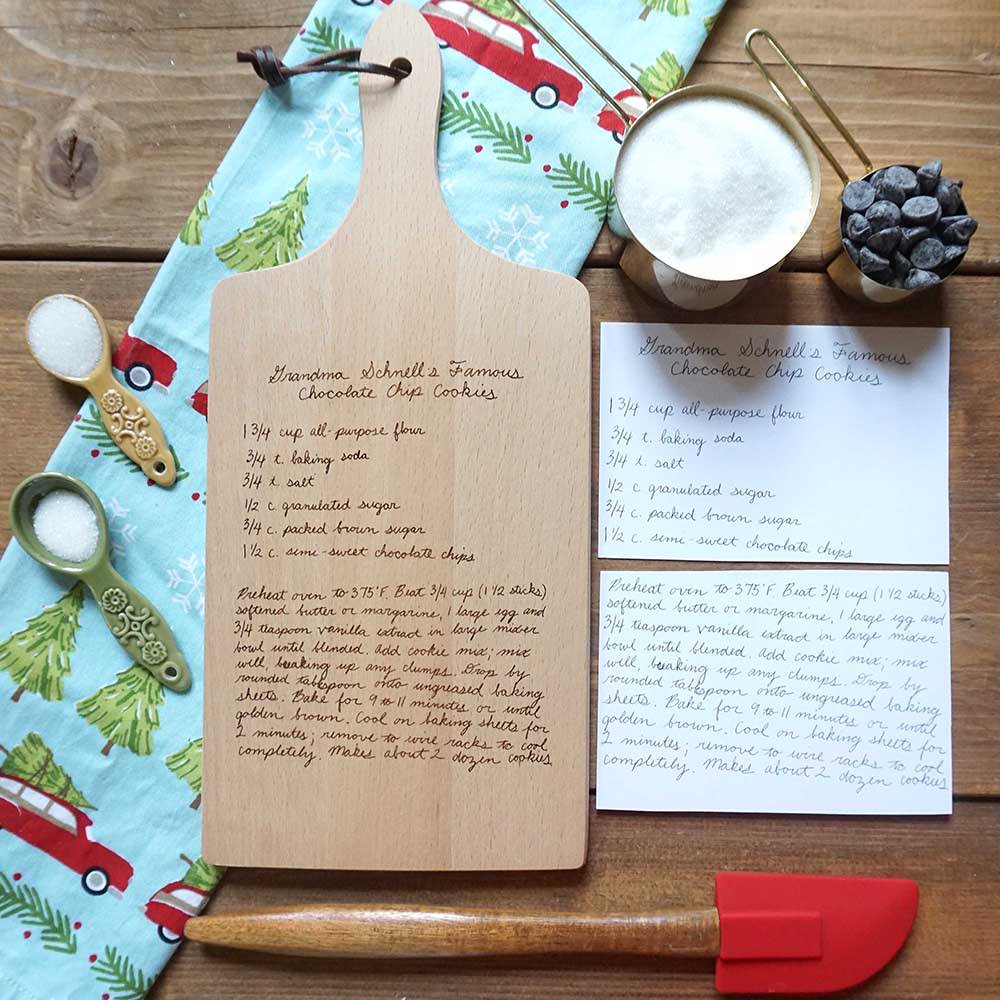 Grandma Schnell's Famous
Chocolate Chip Cookies
1 3/4 cup all-purpose flour
3/4 t. baking soda
3/4 t. salt
1/2 c. granulated sugar
3/4 c. packed brown sugar
1 1/2 c. semi-sweet chocolate chips
Preheat oven to 375°F. Beat 3/4 cup (1 1/2 sticks)
softened butter or margarine, 1 large egg and
3/4 teaspoon vanilla extract in large mixer
bowl until blended. Add cookie mix; mix
well, breaking up any clumps. Drop by
rounded tablespoon onto ungreased baking
sheets. Bake for 9 to 11 minutes or until
golden brown. Cool on baking sheets for
2 minutes; remove to wire racks to cool
completely. Makes about 2 dozen cookies
Grandma Schnell's Famous
Chocolate Chip Cookies
1 3/4 cup all-purpose flour
3/4 t. baking soda
3/4 t. salt
1/2 c. granulated sugar
3/4 c. packed brown sugar
1 1/2 c. semi-sweet chocolate chips
Preheat oven to 375°F. Beat 3/4 cup (1 1/2 sticks)
softened butter or margarine, 1 large egg and
3/4 teaspoon vanilla extract in large mixer
bowl until blended. Add cookie mix; mix
well, breaking up any clumps. Drop by
rounded tablespoon onto ungreased baking
sheets. Bake for 9 to 11 minutes or until
golden brown. Cool on baking sheets for
2 minutes; remove to wire racks to cool
completely. Makes about 2 dozen cookies